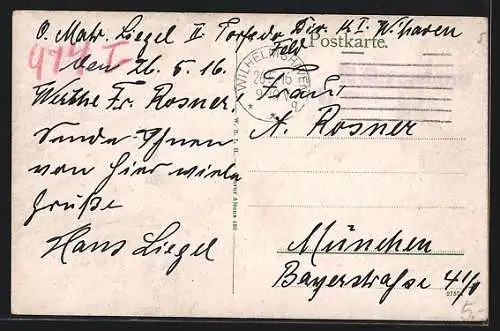 O. Matr. Liegel II. Torpedo Div. K I. W'haven
Feld Postkarte.
414 I
den 26. 5. 16.
Werthe Fr. Rosner.
Sende Ihnen
von hier viele
Grüße
Hans Liegel
WILHELMSHAVEN
Frau
A. Rosner
München
Bayerstraße 41/0
5.-